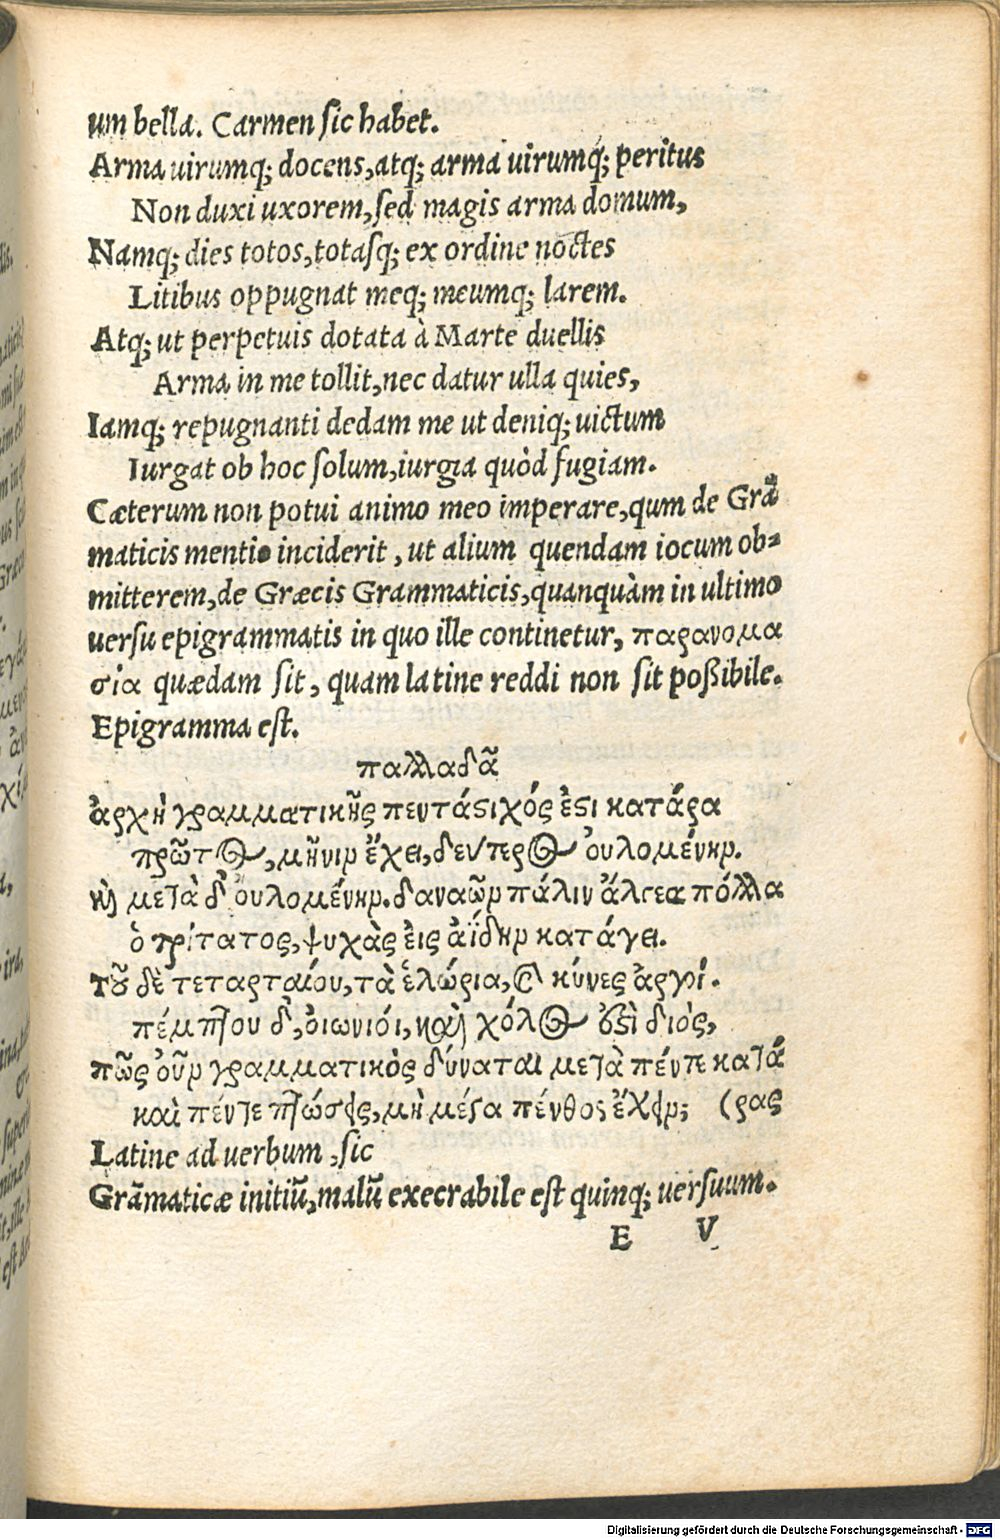 um bella. Carmen sic habet.
Arma uirumq; docens, atq; arma uirumq; peritus
Non duxi uxorem, sed magis arma domum,
Namq; dies totos, totasq; ex ordine noctes
Litibus oppugnat meq; meumq; larem.
Atq; ut perpetuis dotata à Marte duellis
Arma in me tollit, nec datur ulla quies,
Iamq; repugnanti dedam me ut deniq; uictum
Iurgat ob hoc solum, iurgia quòd fugiam.
Cæterum non potui animo meo imperare, qum de Grã
maticis mentio inciderit, ut alium quendam iocum ob-
mitterem, de Græcis Grammaticis, quanquàm in ultimo
uersu epigrammatis in quo ille continetur, παρανομα
σία quædam sit, quam latine reddi non sit poßibile.
Epigramma est.
παλλαδᾶ
ἀρχὴ γραμματικῆς πεντάστιχός ἐστι κατάρα
πρῶτος, μῆνιν ἔχει, δεύτερος οὐλομένην.
καὶ μετὰ δ' οὐλομένην. δαναῶν πάλιν ἄλγεα πόλλα
ὁ τρίτατος, ψυχὰς εἰς ἀΐδην κατάγει.
τοῦ δὲ τεταρταίου, τὰ ἑλώρια, καὶ κύνες ἀργοί.
πέμπτου δ', οἰωνιόι, καὶ χόλος ἐστὶ διὸς,
πῶς οὖν γραμματικὸς δύναται μετὰ πέντε κατά
καὶ πέντε πτώσεις, μὴ μέγα πένθος ἔχειν; (ρας
Latine ad uerbum, sic
Grãmaticæ initiũ, malũ execrabile est quinq; uersuum.
E V
Digitalisierung gefördert durch die Deutsche Forschungsgemeinschaft - DFG